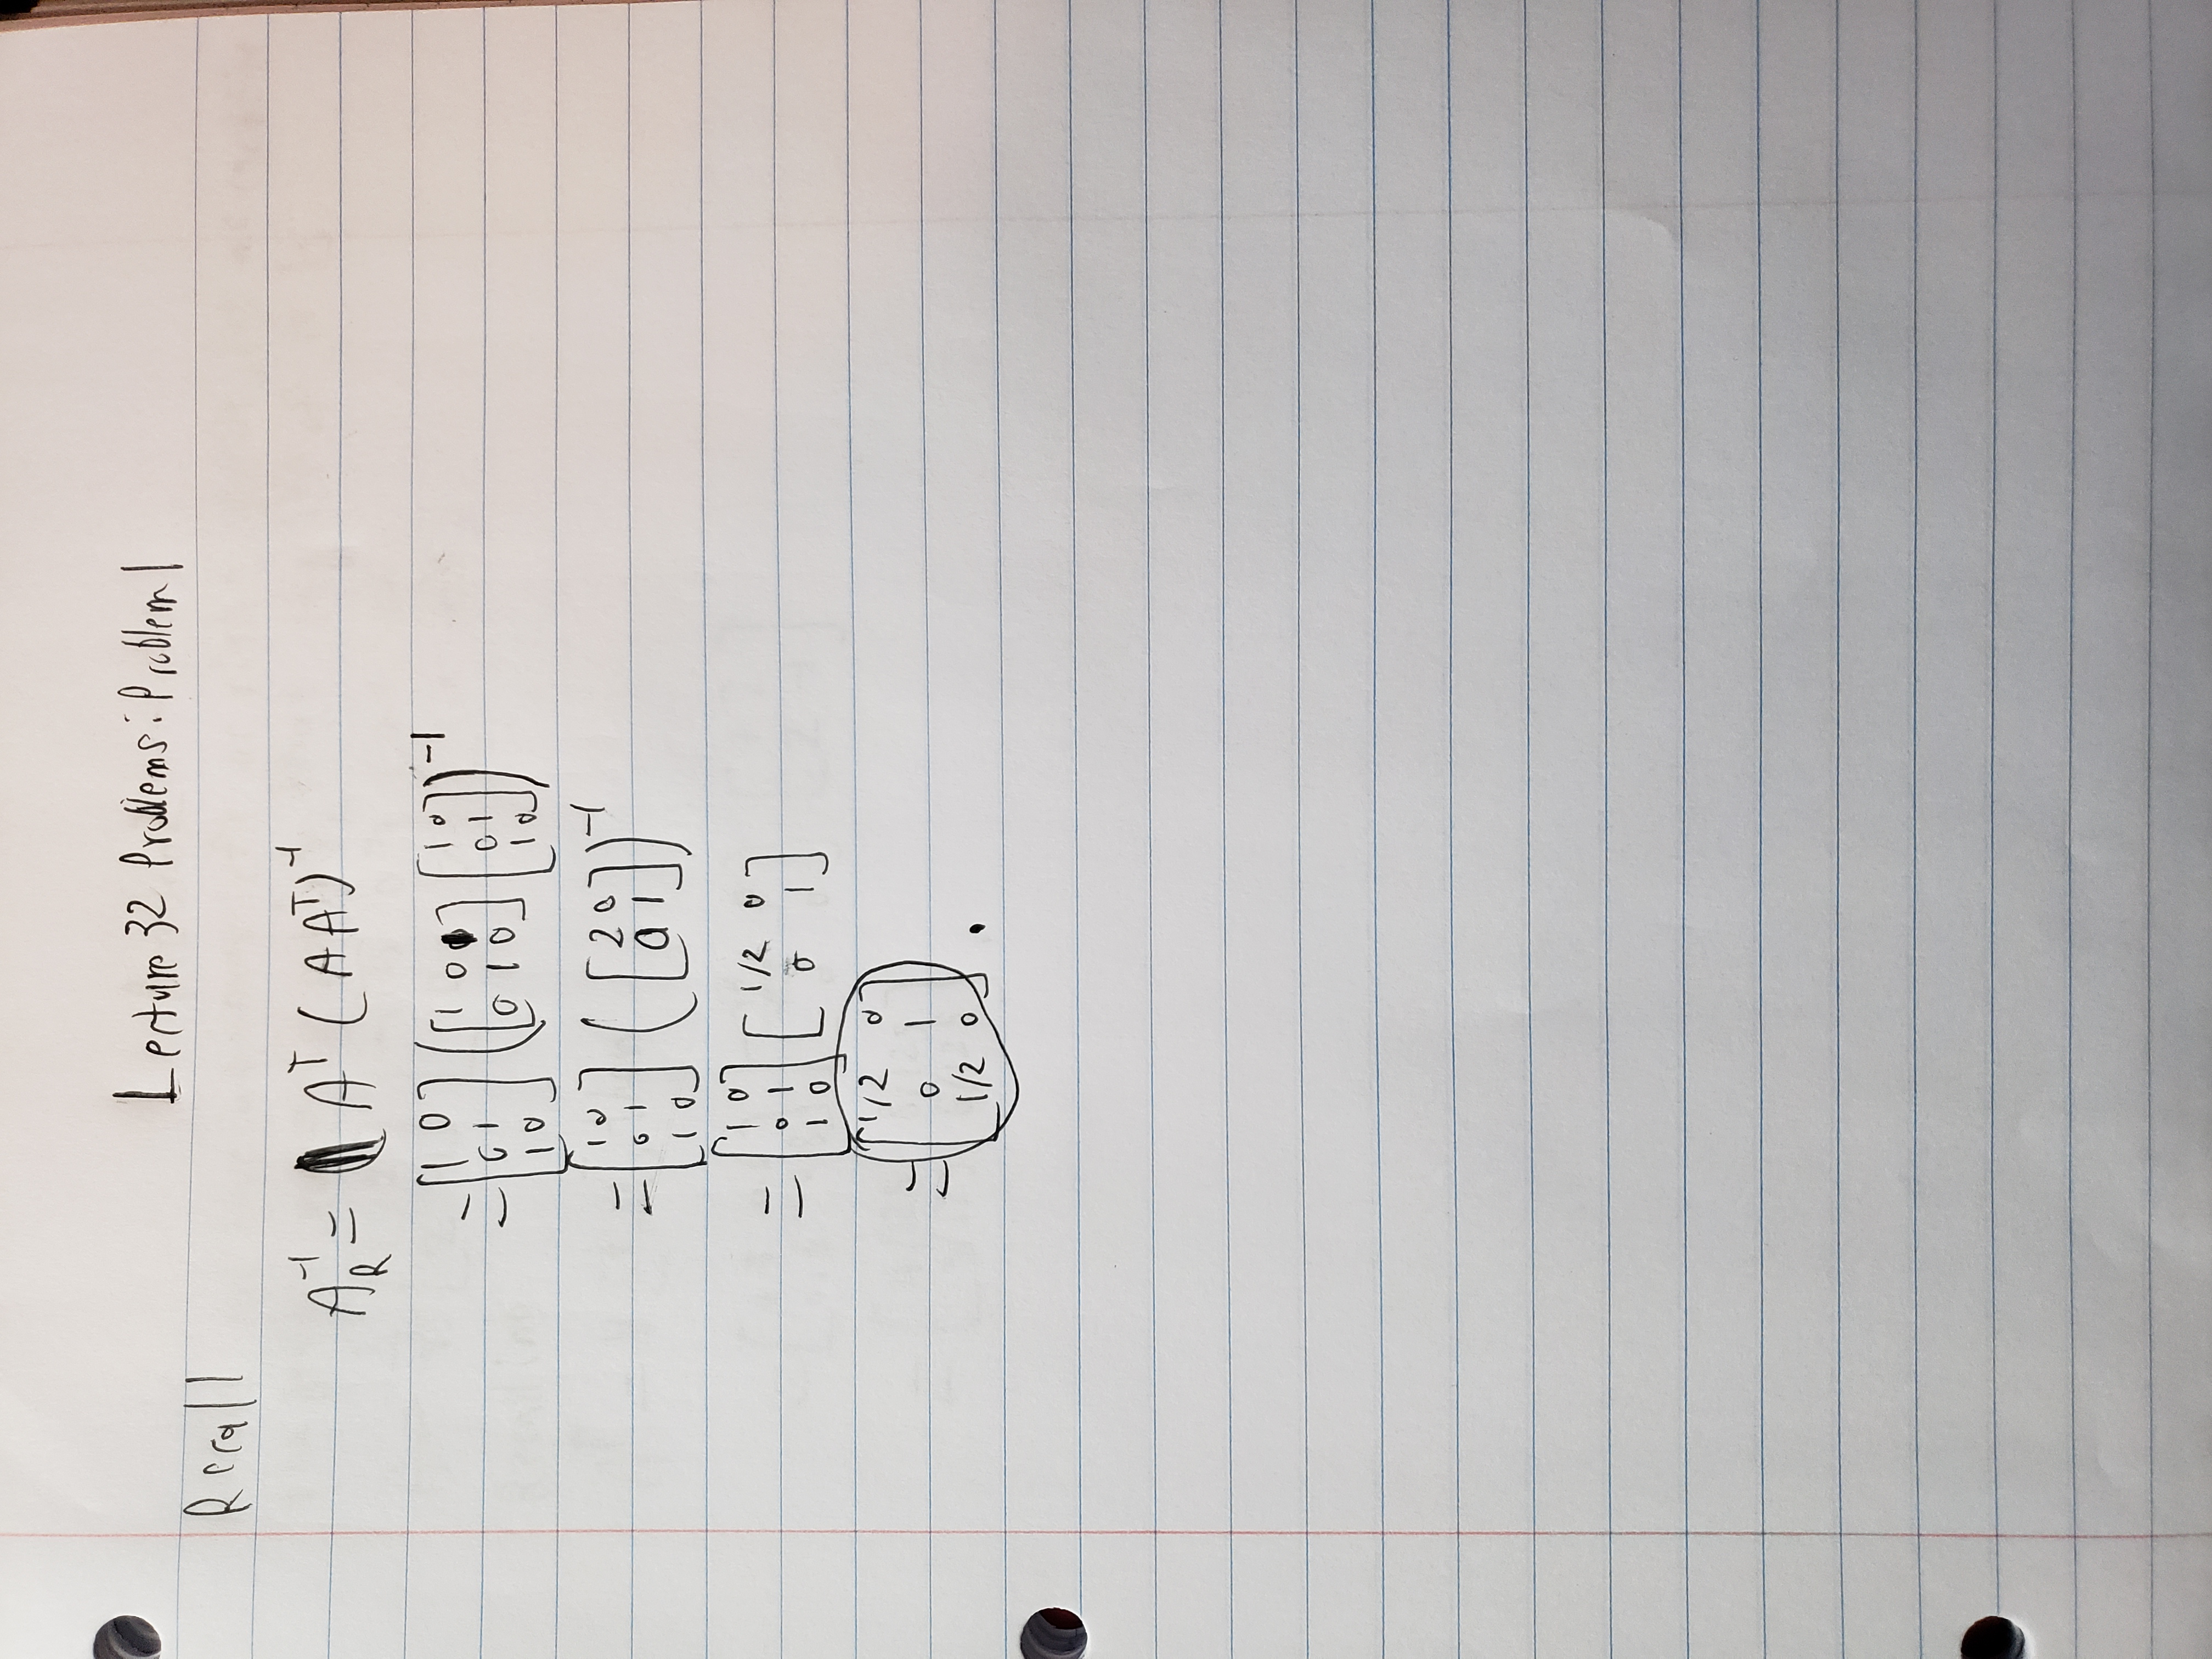 Lecture 32 Problems: Problem 1
Recall
A_R^-1 = A^T (A A^T)^-1
= [1 0; 0 1; 1 0] ([1 0 1; 0 1 0] [1 0; 0 1; 1 0])^-1
= [1 0; 0 1; 1 0] ([2 0; 0 1])^-1
= [1 0; 0 1; 1 0] [1/2 0; 0 1]
= [1/2 0; 0 1; 1/2 0].